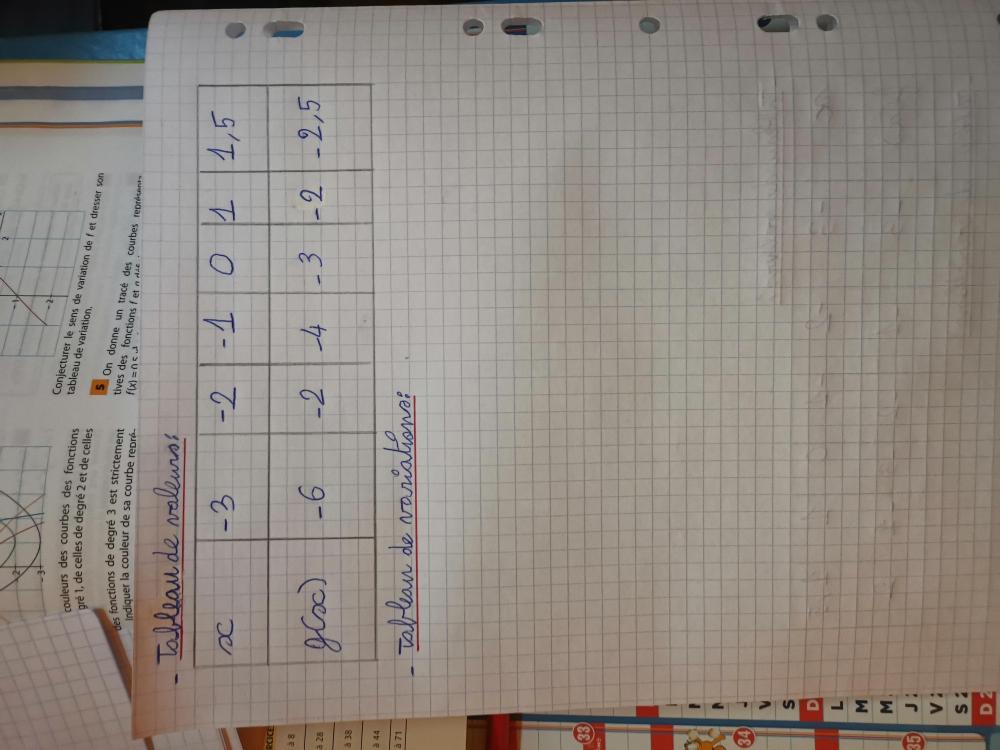 - Tableau de valeurs:
x -3 -2 -1 0 1 1,5
g(x) -6 -2 -4 -3 -2 -2,5
- Tableau de variations:
Conjecturer le sens de variation de f et dresser son
tableau de variation.
5 On donne un tracé des courbes
tives des fonctions f et
couleurs des courbes des fonctions
gré 1, de celles de degré 2 et de celles
des fonctions de degré 3 est strictement
Indiquer la couleur de sa courbe repré-
à 8
à 28
à 38
à 44
à 71
33
34
35
V
S
D
L
M
M
J
V 2
S 2
D 2